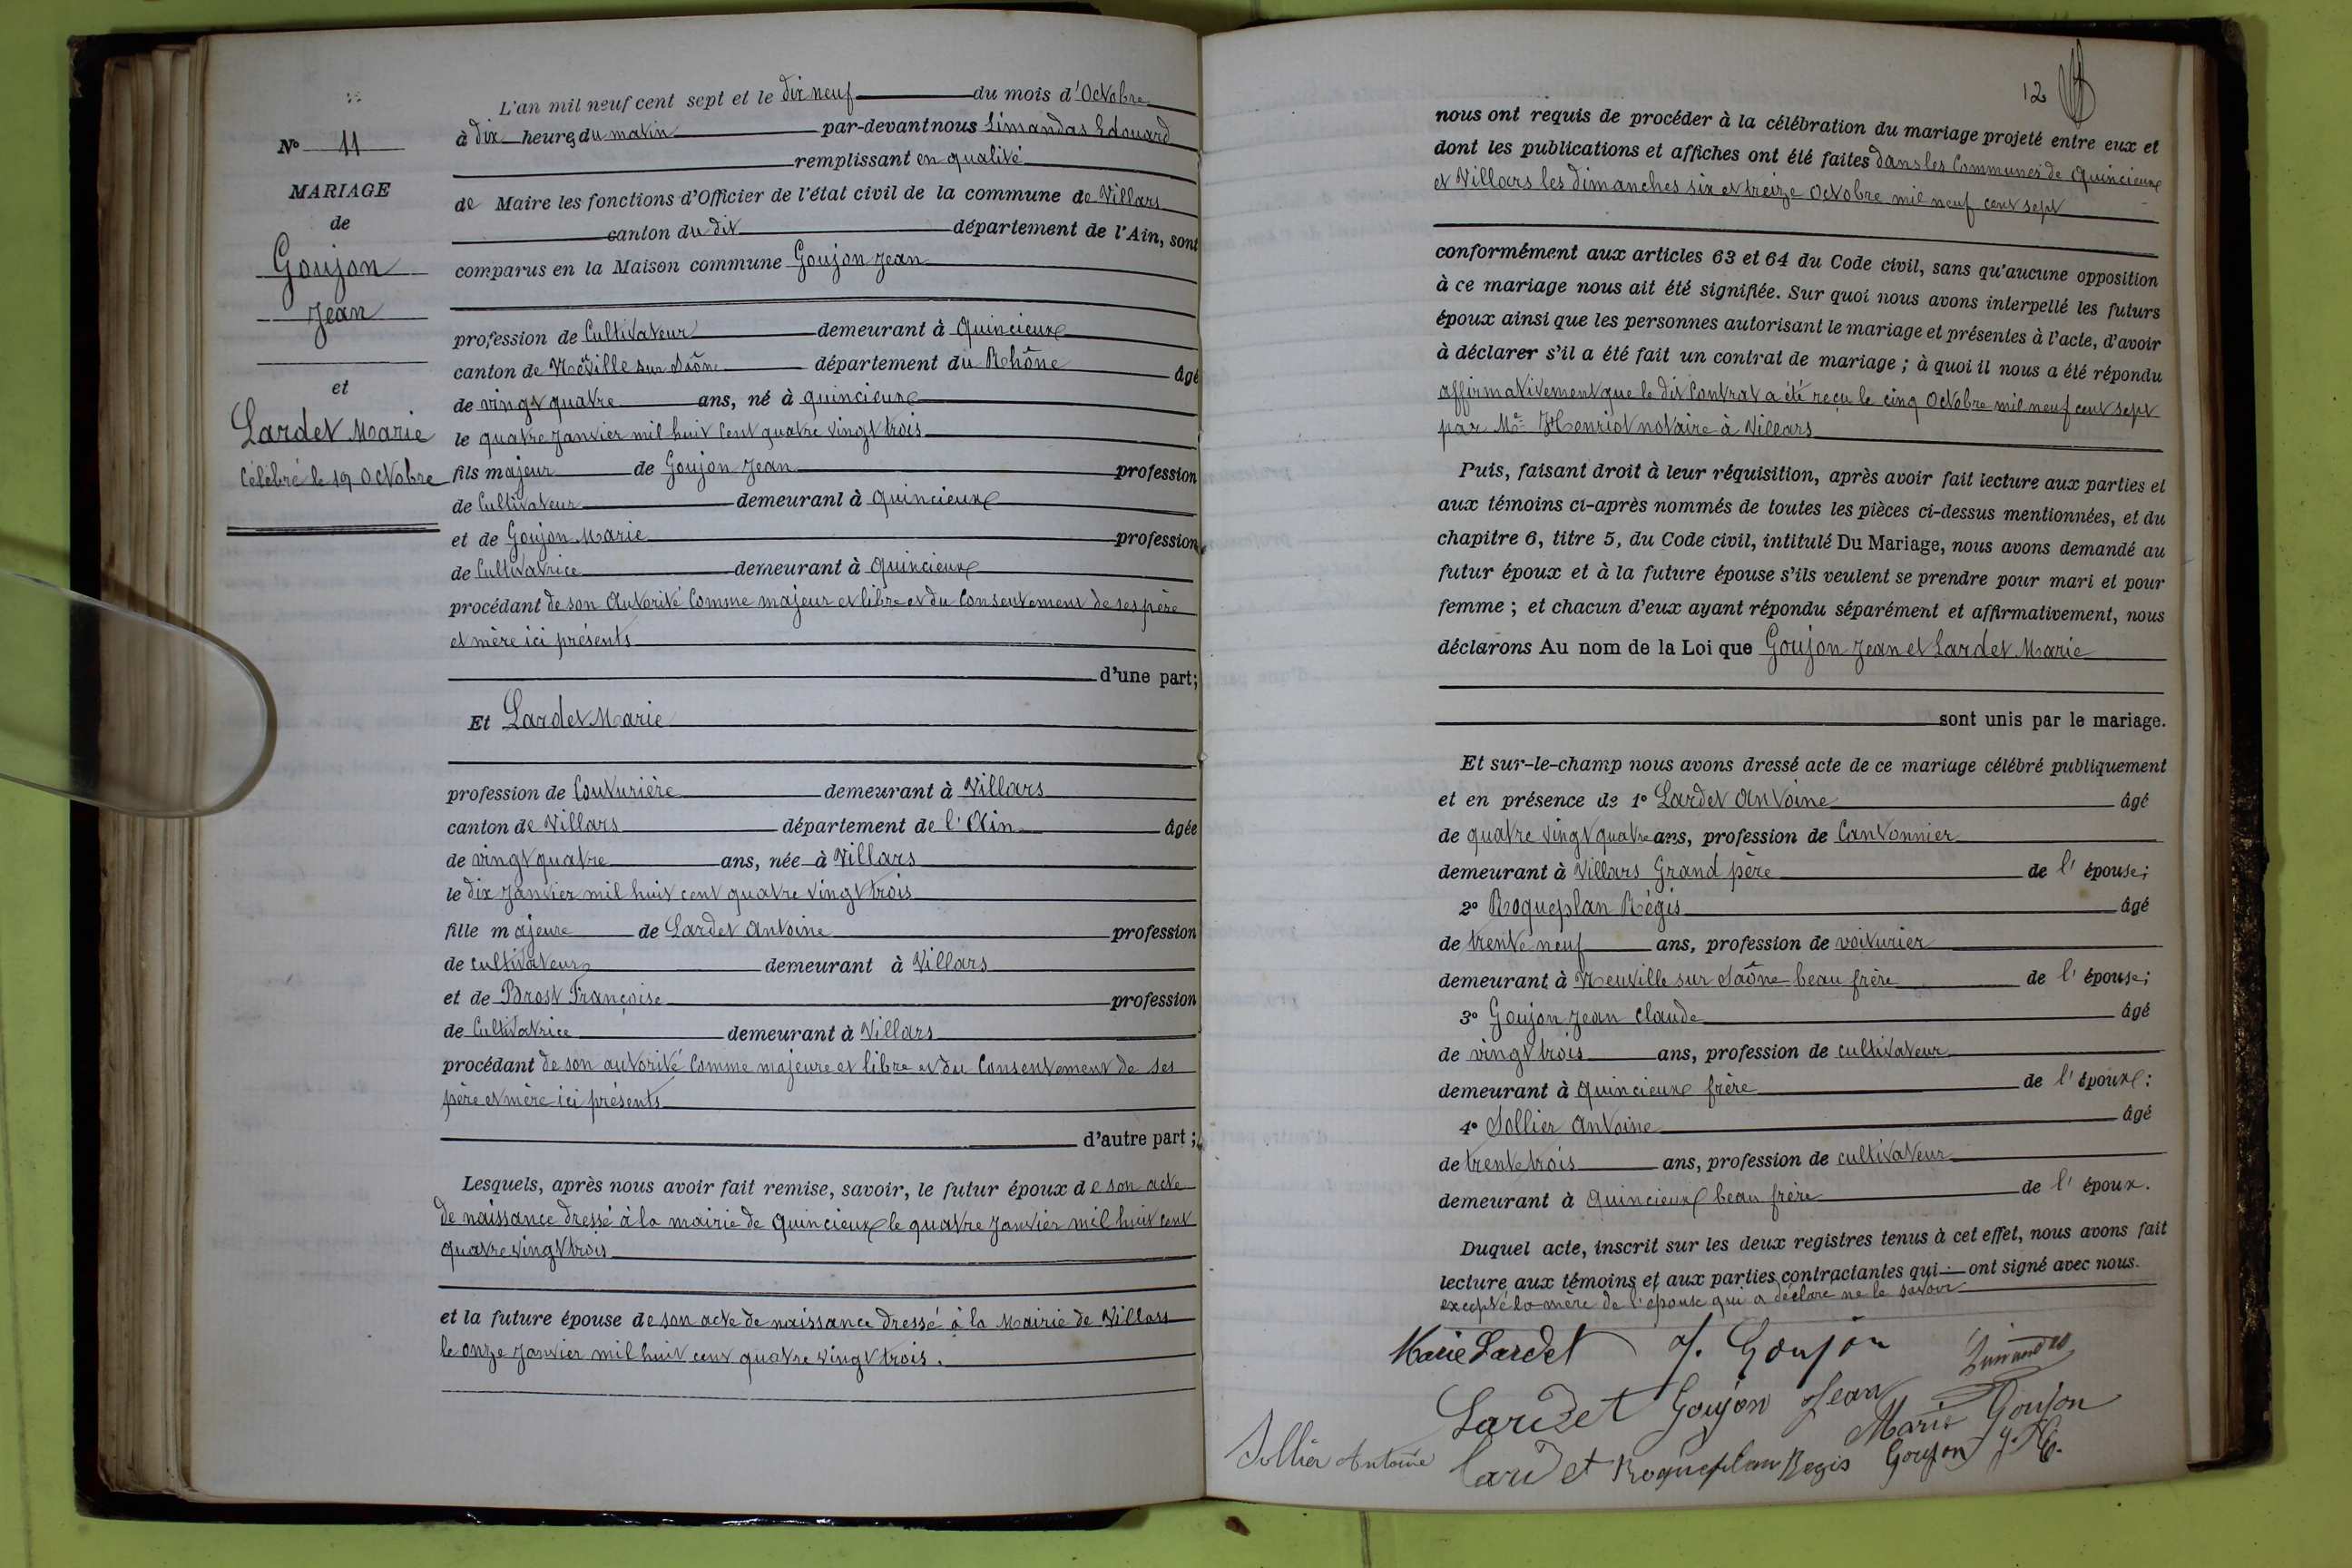 N° 11
MARIAGE
de
Goujon
Jean
et
Lardet Marie
Célébré le 19 Octobre
L'an mil neuf cent sept et le dix neuf du mois d'Octobre
à dix heures du matin par-devant nous Limandas Edouard
remplissant en qualité
de Maire les fonctions d'Officier de l'état civil de la commune de Villars
canton du dit département de l'Ain, sont
comparus en la Maison commune Goujon Jean
profession de Cultivateur demeurant à Quincieux
canton de Neuville sur Saône département du Rhône âgé
de vingt quatre ans, né à Quincieux
le quatre Janvier mil huit cent quatre vingt trois
fils majeur de Goujon Jean profession
de Cultivateur demeurant à Quincieux
et de Goujon Marie profession
de Cultivatrice demeurant à Quincieux
procédant de son Autorité Comme majeur et libre et du Consentement de ses père
et mère ici présents
d'une part;
Et Lardet Marie
profession de Couturière demeurant à Villars
canton de Villars département de l'Ain âgée
de vingt quatre ans, née à Villars
le dix Janvier mil huit cent quatre vingt trois
fille majeure de Lardet Antoine profession
de cultivateur demeurant à Villars
et de Brost Françoise profession
de Cultivatrice demeurant à Villars
procédant de son autorité Comme majeure et libre et du Consentement de ses
père et mère ici présents
d'autre part;
Lesquels, après nous avoir fait remise, savoir, le futur époux de son acte
de naissance dressé à la mairie de Quincieux le quatre Janvier mil huit cent
quatre vingt trois
et la future épouse de son acte de naissance dressé à la Mairie de Villars
le onze Janvier mil huit cent quatre vingt trois.
12
nous ont requis de procéder à la célébration du mariage projeté entre eux et
dont les publications et affiches ont été faites dans les Communes de Quincieux
et Villars les dimanches six et treize Octobre mil neuf cent sept
conformément aux articles 63 et 64 du Code civil, sans qu'aucune opposition
à ce mariage nous ait été signifiée. Sur quoi nous avons interpellé les futurs
époux ainsi que les personnes autorisant le mariage et présentes à l'acte, d'avoir
à déclarer s'il a été fait un contrat de mariage; à quoi il nous a été répondu
affirmativement que le dit Contrat a été reçu le cinq Octobre mil neuf cent sept
par Me Henriot notaire à Villars
Puis, faisant droit à leur réquisition, après avoir fait lecture aux parties et
aux témoins ci-après nommés de toutes les pièces ci-dessus mentionnées, et du
chapitre 6, titre 5, du Code civil, intitulé Du Mariage, nous avons demandé au
futur époux et à la future épouse s'ils veulent se prendre pour mari et pour
femme; et chacun d'eux ayant répondu séparément et affirmativement, nous
déclarons Au nom de la Loi que Goujon Jean et Lardet Marie
sont unis par le mariage.
Et sur-le-champ nous avons dressé acte de ce mariage célébré publiquement
et en présence de 1° Lardet Antoine âgé
de quatre vingt quatre ans, profession de Cantonnier
demeurant à Villars Grand père de l'épouse;
2° Roqueplan Régis âgé
de trente neuf ans, profession de voiturier
demeurant à Neuville sur Saône beau frère de l'épouse;
3° Goujon Jean Claude âgé
de vingt trois ans, profession de cultivateur
demeurant à Quincieux frère de l'époux:
4° Sollier Antoine âgé
de trente trois ans, profession de cultivateur
demeurant à Quincieux beau frère de l'époux.
Duquel acte, inscrit sur les deux registres tenus à cet effet, nous avons fait
lecture aux témoins et aux parties contractantes qui ont signé avec nous.
excepté la mère de l'épouse qui a déclaré ne le savoir
Marie Lardet J. Goujon Limandas
Lardet Goujon Jean Marie Goujon
Sollier Antoine Lardet Roqueplan Regis Goujon J. Cl.